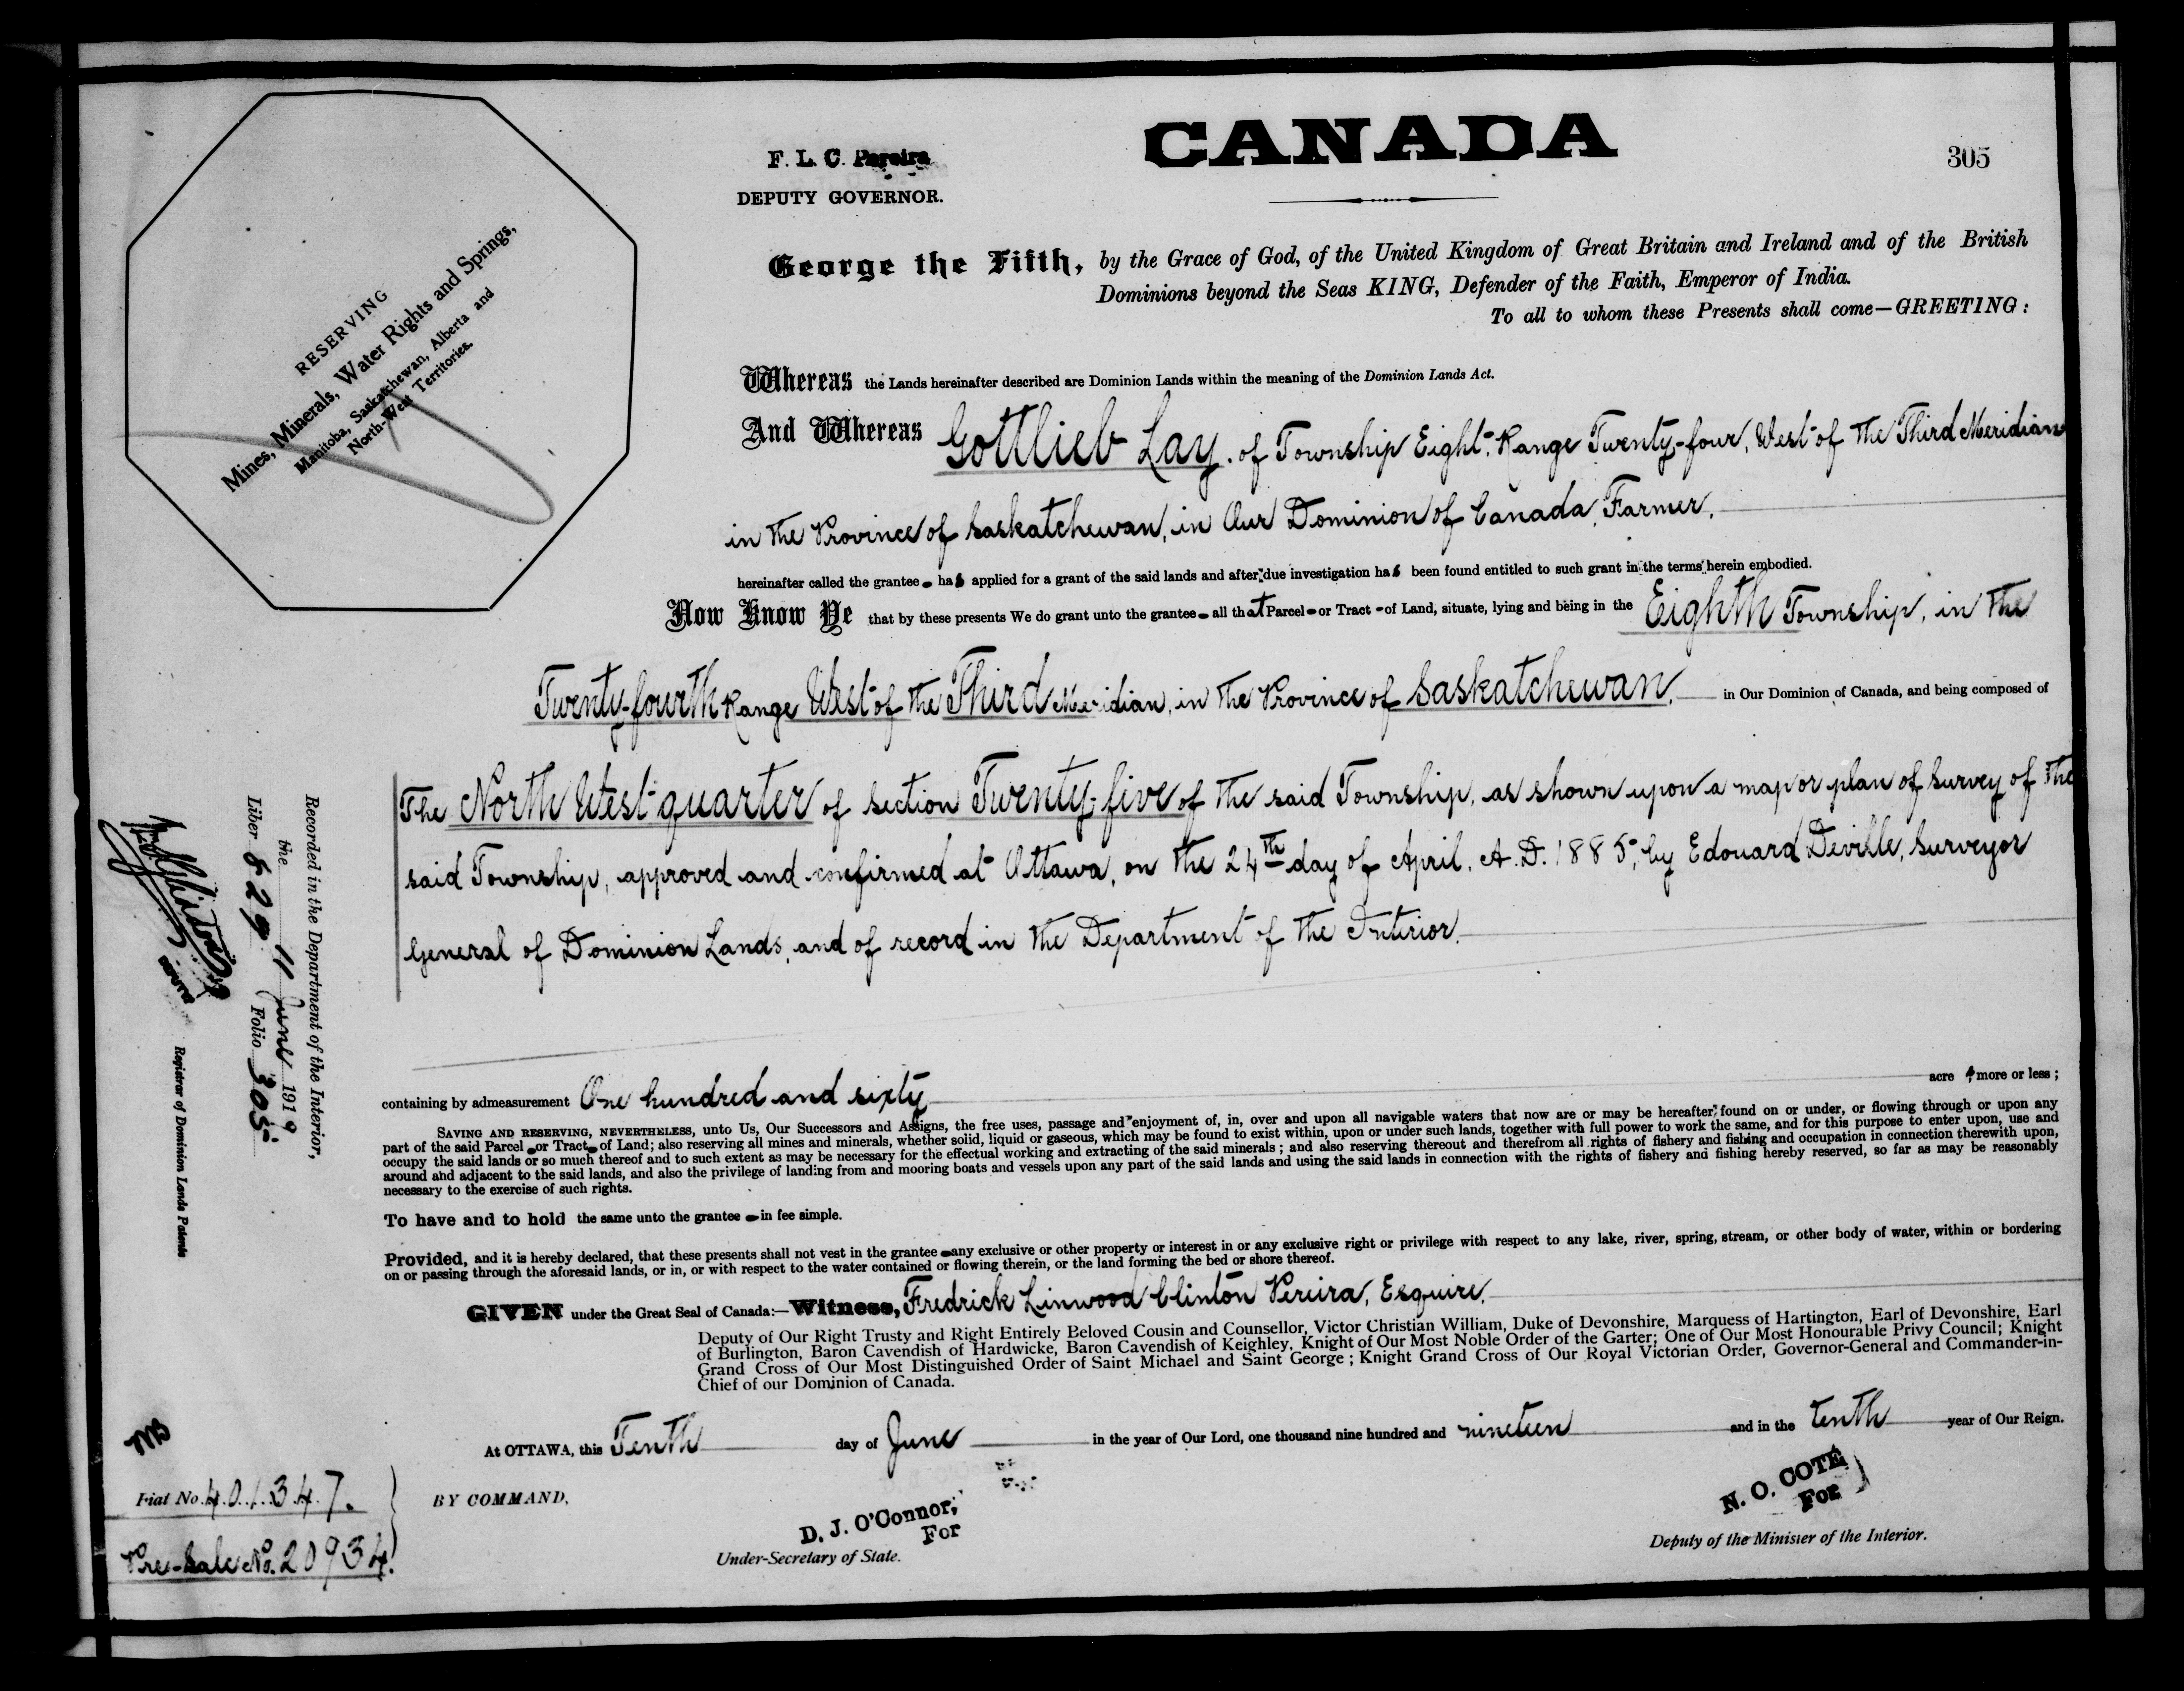 CANADA
305
F. L. C. Pereira
DEPUTY GOVERNOR.
RESERVING
Mines, Minerals, Water Rights and Springs,
Manitoba, Saskatchewan, Alberta and
North-West Territories.
George the Fifth, by the Grace of God, of the United Kingdom of Great Britain and Ireland and of the British
Dominions beyond the Seas KING, Defender of the Faith, Emperor of India.
To all to whom these Presents shall come—GREETING:
Whereas the Lands hereinafter described are Dominion Lands within the meaning of the Dominion Lands Act.
And Whereas Gottlieb Lay, of Township Eight, Range Twenty-four, West of the Third Meridian
in the Province of Saskatchewan, in Our Dominion of Canada, Farmer,
hereinafter called the grantee has applied for a grant of the said lands and after due investigation has been found entitled to such grant in the terms herein embodied.
Now Know Ye that by these presents We do grant unto the grantee all that Parcel or Tract of Land, situate, lying and being in the Eighth Township, in the
Twenty-fourth Range West of the Third Meridian, in the Province of Saskatchewan, in Our Dominion of Canada, and being composed of
The North West quarter of section Twenty-five of the said Township, as shown upon a map or plan of survey of the
said Township, approved and confirmed at Ottawa, on the 24th day of April, A.D. 1885, by Edouard Deville, Surveyor
General of Dominion Lands, and of record in the Department of the Interior.
containing by admeasurement One hundred and sixty acres more or less;
SAVING AND RESERVING, NEVERTHELESS, unto Us, Our Successors and Assigns, the free uses, passage and enjoyment of, in, over and upon all navigable waters that now are or may be hereafter found on or under, or flowing through or upon any
part of the said Parcel or Tract of Land; also reserving all mines and minerals, whether solid, liquid or gaseous, which may be found to exist within, upon or under such lands, together with full power to work the same, and for this purpose to enter upon, use and
occupy the said lands or so much thereof and to such extent as may be necessary for the effectual working and extracting of the said minerals; and also reserving thereout and therefrom all rights of fishery and fishing and occupation in connection therewith upon,
around and adjacent to the said lands, and also the privilege of landing from and mooring boats and vessels upon any part of the said lands and using the said lands in connection with the rights of fishery and fishing hereby reserved, so far as may be reasonably
necessary to the exercise of such rights.
To have and to hold the same unto the grantee in fee simple.
Provided, and it is hereby declared, that these presents shall not vest in the grantee any exclusive or other property or interest in or any exclusive right or privilege with respect to any lake, river, spring, stream, or other body of water, within or bordering
on or passing through the aforesaid lands, or in, or with respect to the water contained or flowing therein, or the land forming the bed or shore thereof.
GIVEN under the Great Seal of Canada:—Witness, Fredrick Linwood Clinton Pereira, Esquire,
Deputy of Our Right Trusty and Right Entirely Beloved Cousin and Counsellor, Victor Christian William, Duke of Devonshire, Marquess of Hartington, Earl of Devonshire, Earl
of Burlington, Baron Cavendish of Hardwicke, Baron Cavendish of Keighley, Knight of Our Most Noble Order of the Garter; One of Our Most Honourable Privy Council; Knight
Grand Cross of Our Most Distinguished Order of Saint Michael and Saint George; Knight Grand Cross of Our Royal Victorian Order, Governor-General and Commander-in-
Chief of our Dominion of Canada.
At OTTAWA, this Tenth day of June in the year of Our Lord, one thousand nine hundred and nineteen and in the tenth year of Our Reign.
BY COMMAND,
D. J. O'Connor,
For
Under-Secretary of State.
N. O. COTE
For
Deputy of the Minister of the Interior.
Recorded in the Department of the Interior,
the 11 June 1919
Liber 629 Folio 305
Registrar of Dominion Lands Patents
Fiat No. 401347.
Pre-Sale No. 20934.